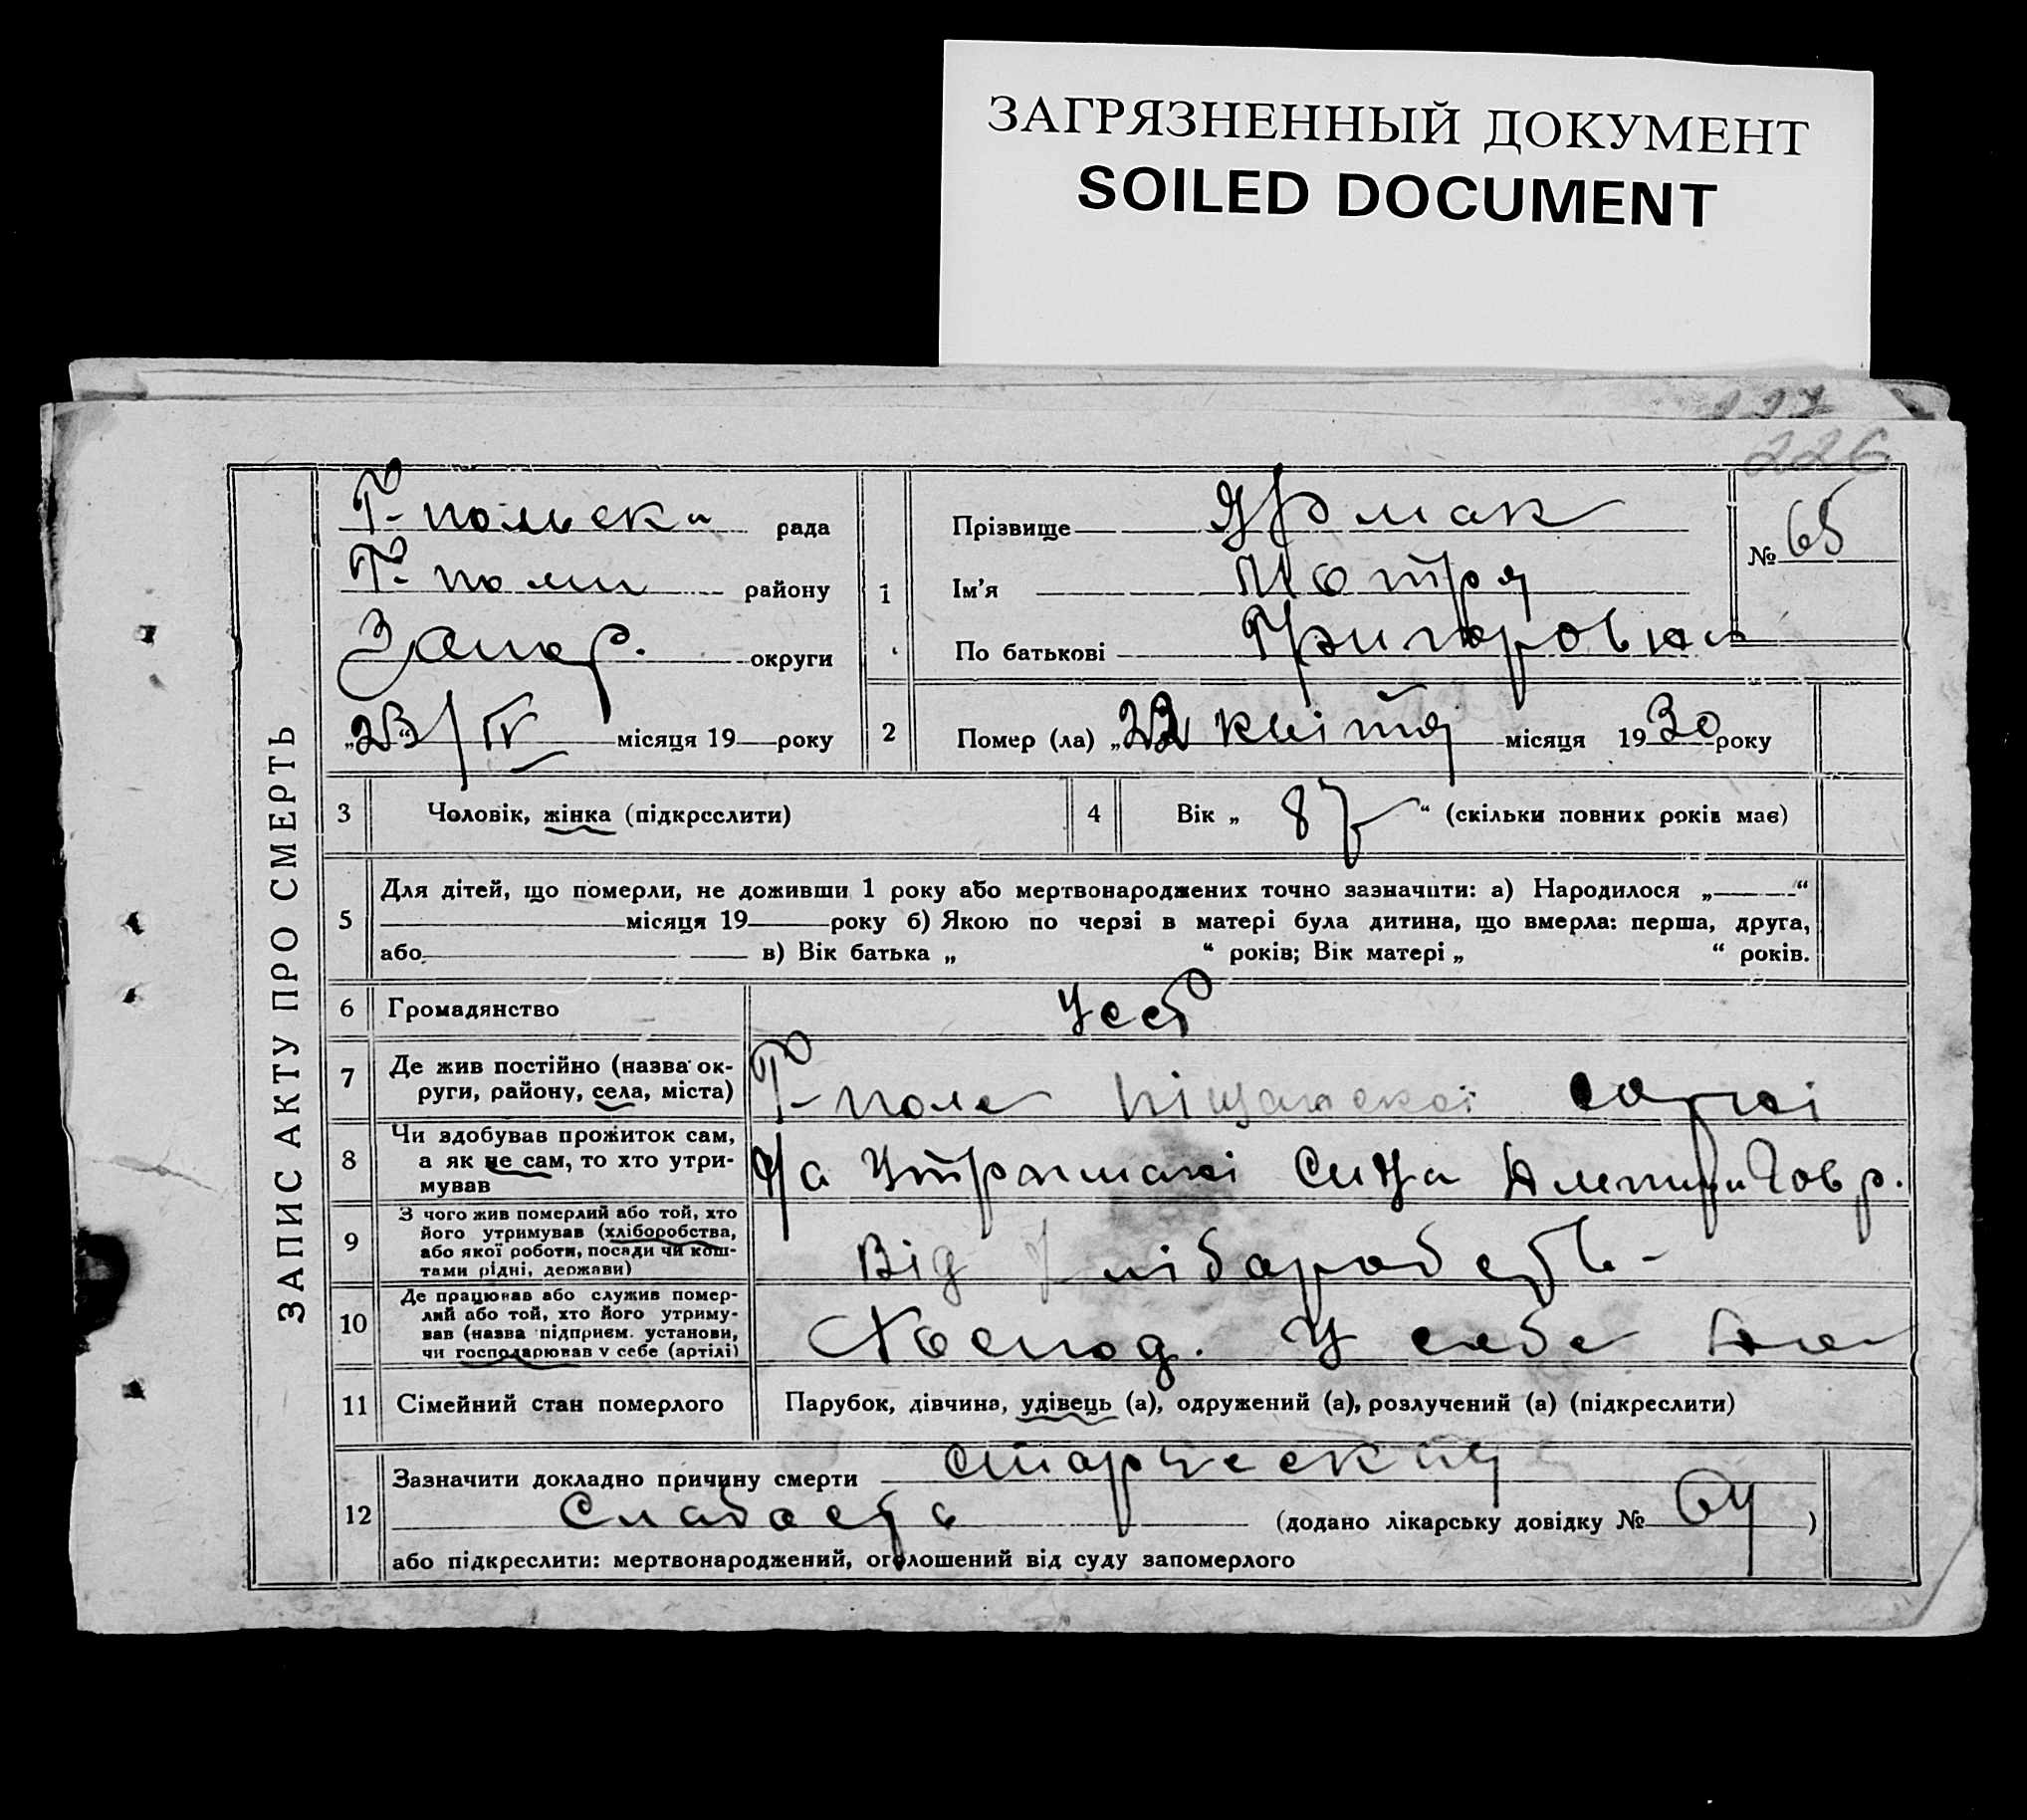 ЗАГРЯЗНЕННЫЙ ДОКУМЕНТ
SOILED DOCUMENT
227
226
ЗАПИС АКТУ ПРО СМЕРТЬ
Г-польск рада
Г-поли району
Запор. округи
„23“/IV місяця 19 року
1
Прізвище Ярмак
№ 65
Ім'я Мотря
По батькові Григоровна
2
Помер (ла) „22 квітня місяця 1930 року
3 Чоловік, жінка (підкреслити)
4 Вік „ 87 “ (скільки повних років має)
5
Для дітей, що померли, не доживши 1 року або мертвонароджених точно зазначити: а) Народилося „ “
місяця 19 року б) Якою по черзі в матері була дитина, що вмерла: перша, друга,
або в) Вік батька „ “ років; Вік матері „ “ років.
6 Громадянство Усср
7 Де жив постійно (назва ок-
руги, району, села, міста)
Г-поле Піщанскої сотні
8 Чи здобував прожиток сам,
а як не сам, то хто утри-
мував
На Утриманні Сина
9 З чого жив померлий або той, хто
його утримував (хліборобства,
або якої роботи, посади чи кош-
тами рідні, держави)
Від хліборобств
10 Де працював або служив помер-
лий або той, хто його утриму-
вав (назва підприєм. установи,
чи господарював у себе (артілі)
Господ. У себе
11 Сімейний стан померлого Парубок, дівчина, удівець (а), одружений (а), розлучений (а) (підкреслити)
12 Зазначити докладно причину смерти Старческая
Слабость (додано лікарську довідку № 64 )
або підкреслити: мертвонароджений, оголошений від суду запомерлого